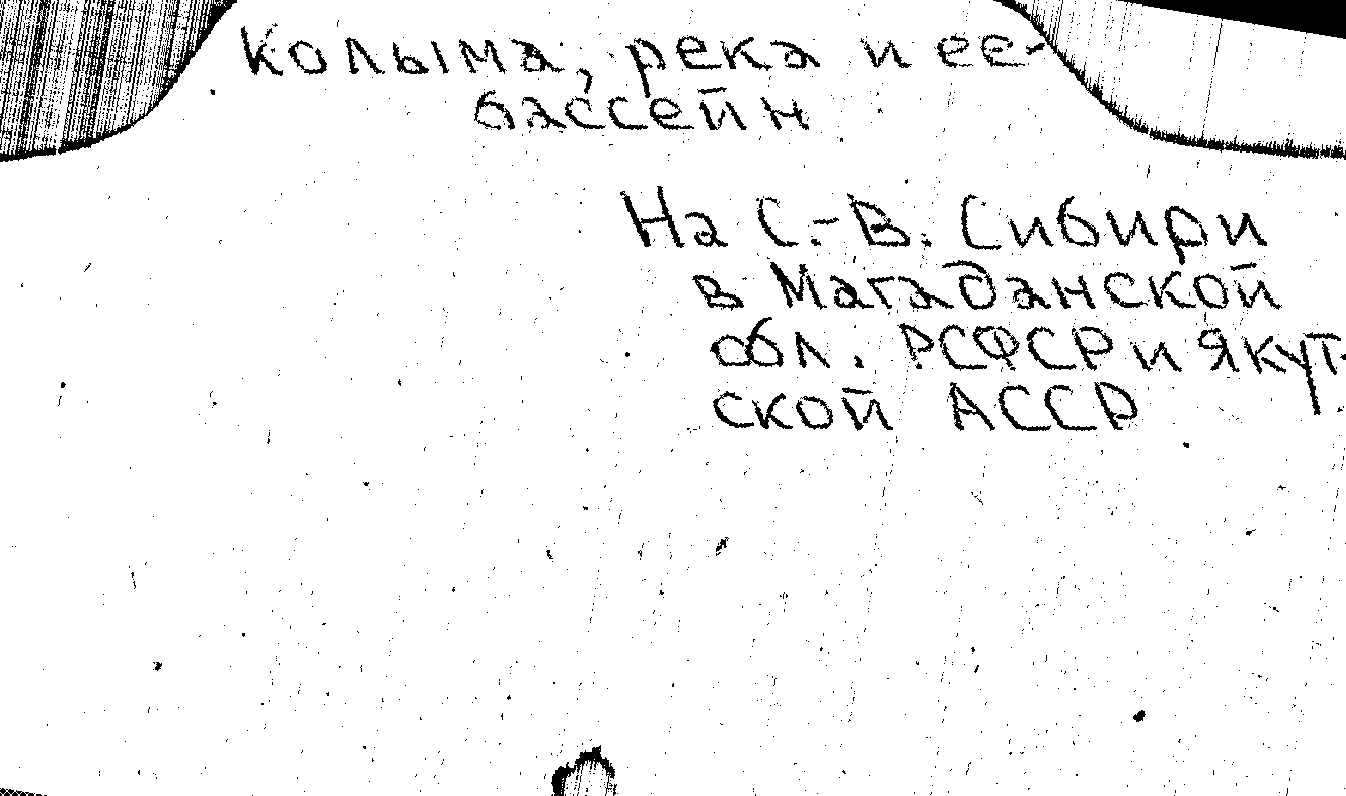 Колыма, река и ее
бассейн
На С.-В. Сибири
в Магаданской
обл. РСФСР и Якут-
ской АССР